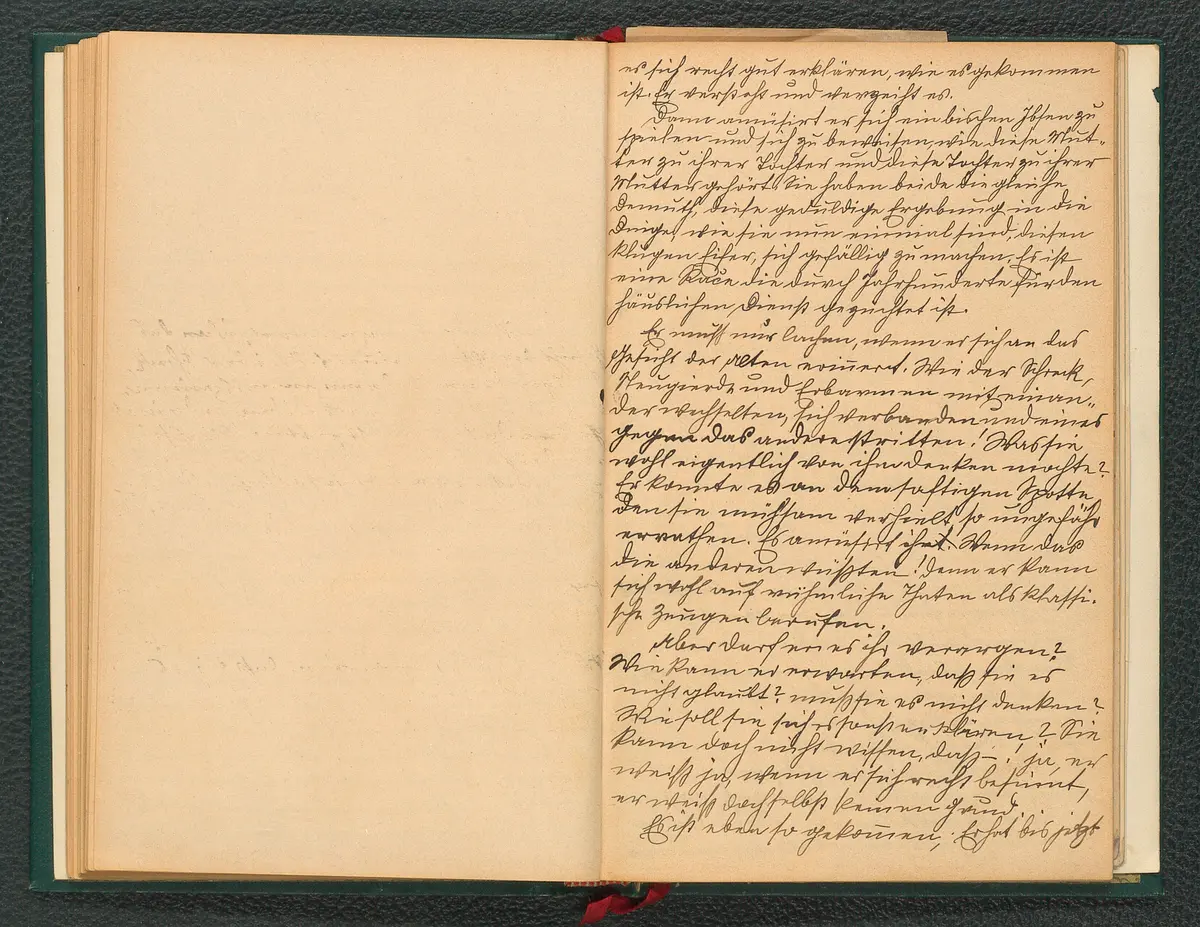 es sich recht gut erklären, wie es gekommen
ist. Er versteht und verzeiht es.
Dann amüsirt er sich ein bischen Ibsen zu
spielen und sich zu beweisen, wie diese Mut-
ter zu ihrer Tochter und diese Tochter zu ihrer
Mutter gehört. Sie haben beide die gleiche
Demuth, diese geduldige Ergebung in die
Dinge, wie sie nun einmal sind, diesen
klugen Eifer, sich gefällig zu machen. Es ist
eine Race die durch Jahrhunderte für den
häuslichen Dienst gezüchtet ist.
Er muß nur lachen, wenn er sich an das
Gesicht der Alten erinnert. Wie der Schreck,
Neugierde und Erbarmen mit einan-
der wechselten, sich verbanden und eines
gegen das andere stritten! Was sie
wohl eigentlich von ihm denken mochte?
Er konnte es an dem saftigen Spotte,
den sie mühsam verhielt, so ungefähr
errathen. Es amüsirt ihn. Wenn das
die anderen wüßten! Denn er kann
sich wohl auf rühmliche Thaten als klassi-
sche Zeugen berufen.
Aber darf er es ihr verargen?
Wie kann er erwarten, daß sie es
nicht glaubt? muß sie es nicht denken?
Wie soll sie sich es sonst erklären? Sie
kann doch nicht wissen, daß –! ja, er
weiß ja, wenn er sich recht besinnt,
er weiß doch selbst keinen Grund.
Es ist eben so gekommen, Er hat bis jetzt